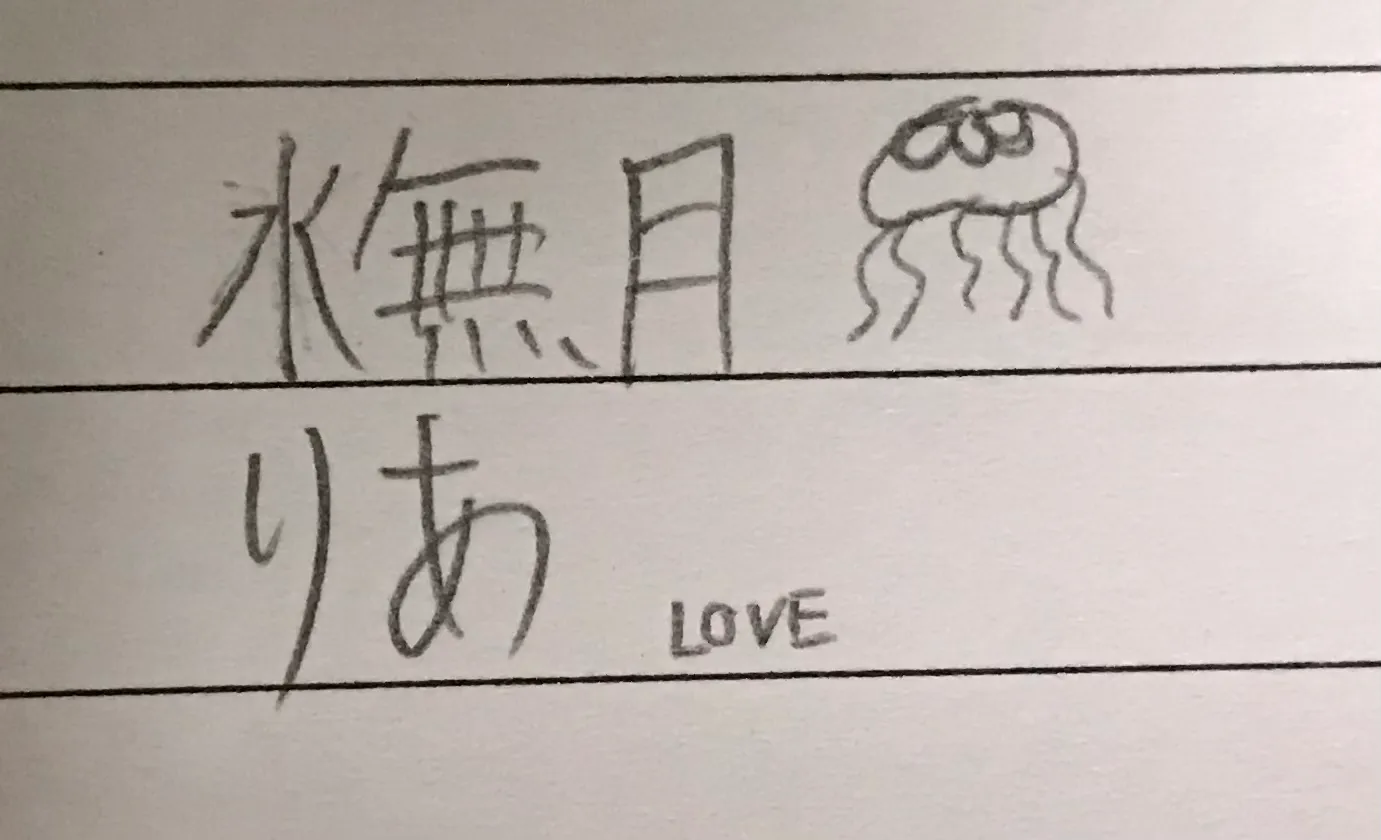 水無月
りあ LOVE